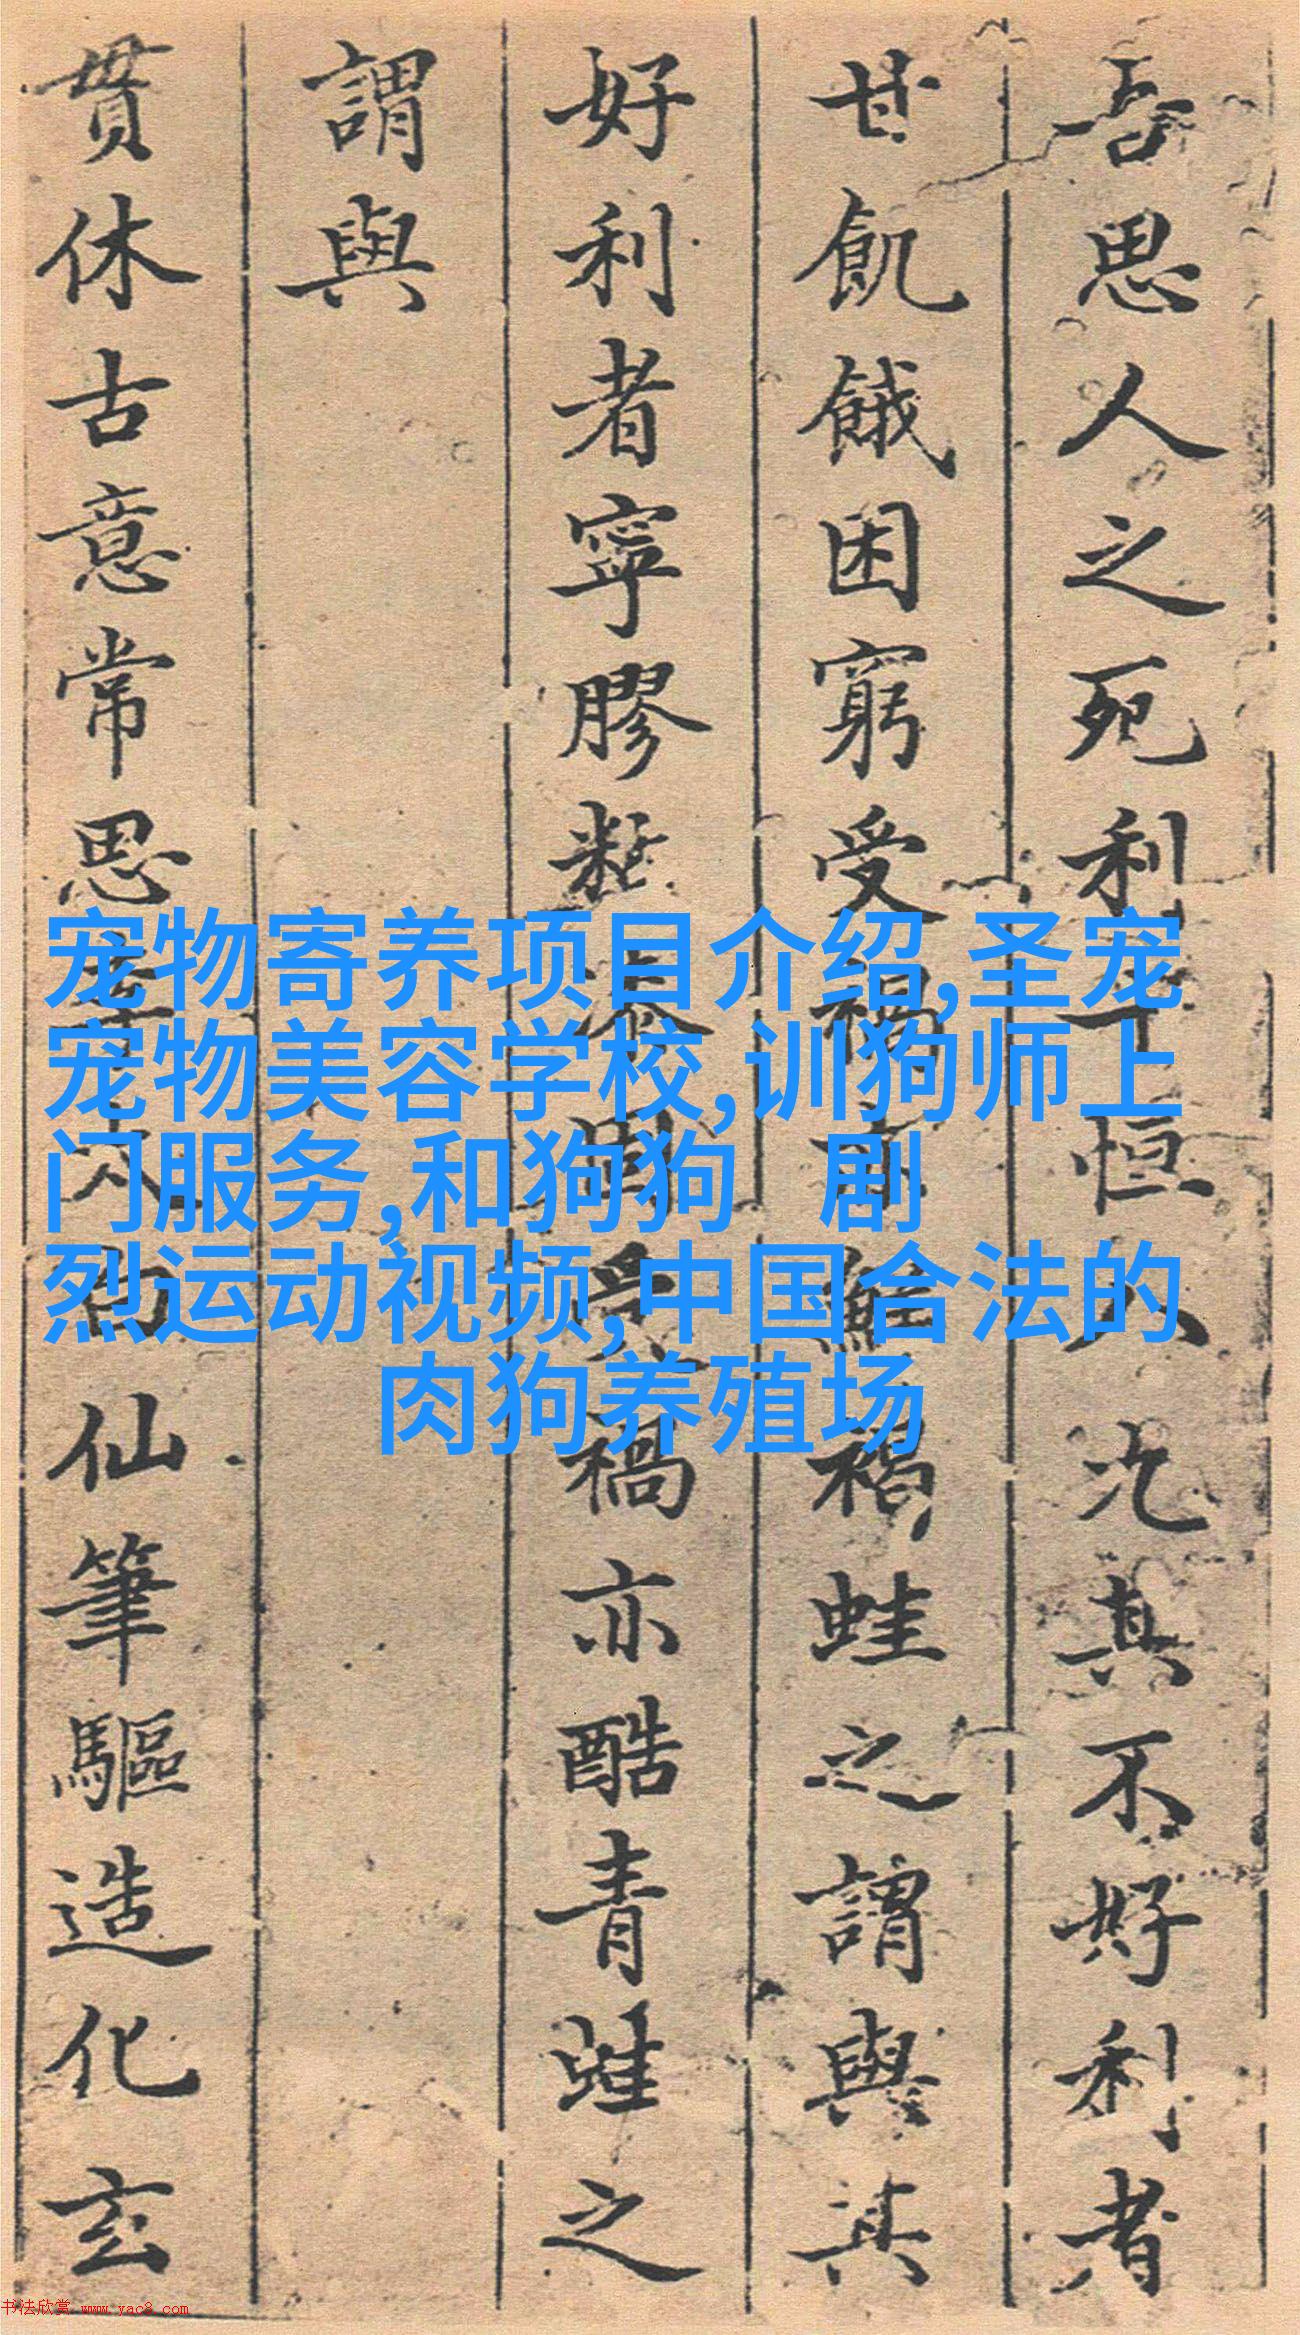 吾思人之死利恒人沈其不好利者
甘飢餓困窮受禍亦褐蛙之謂與其
好利者寧膠黏固受禍亦酷青蛙之
謂與
貫休古意常思李太白仙筆驅造化玄
宠物寄养项目介绍,圣宠
宠物美容学校,训狗师上
门服务,和狗狗 剧
烈运动视频,中国合法的
肉狗养殖场
书法欣赏 www.yac8.com